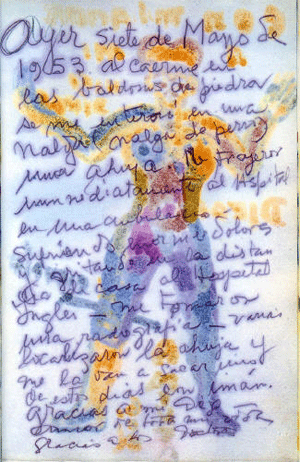 Ayer siete de Mayo de
1953 al caerme en
las baldosas de piedra
se me enterró en una
nalga (nalga de perra)
una ahuja. Me trajeron
inmediatamente al Hospital
en una ambulancia.
sufriendo enormes dolores
y gritando en la distan
cia de casa al Hospital
Ingles – me tomaron
una radiografía – varias
localizaron la ahuja y
me la van a sacar uno
de estos días con imán.
Gracias a mi Diego
amor de toda mi vida
gracias a los Doctores